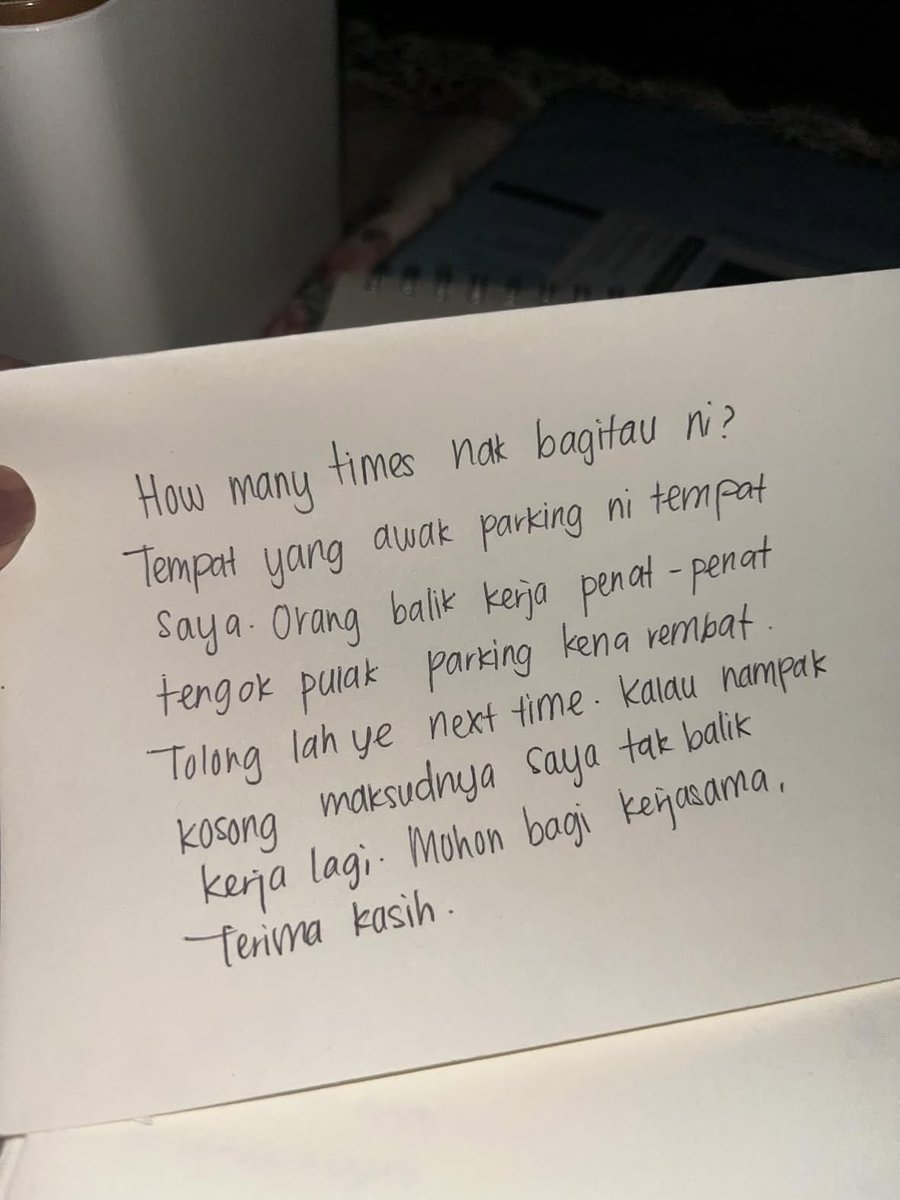 How many times nak bagitau ni?
Tempat yang awak parking ni tempat
saya. Orang balik kerja penat-penat
tengok pulak parking kena rembat.
Tolong lah ye next time. Kalau nampak
kosong maksudnya saya tak balik
kerja lagi. Mohon bagi kerjasama.
Terima kasih.